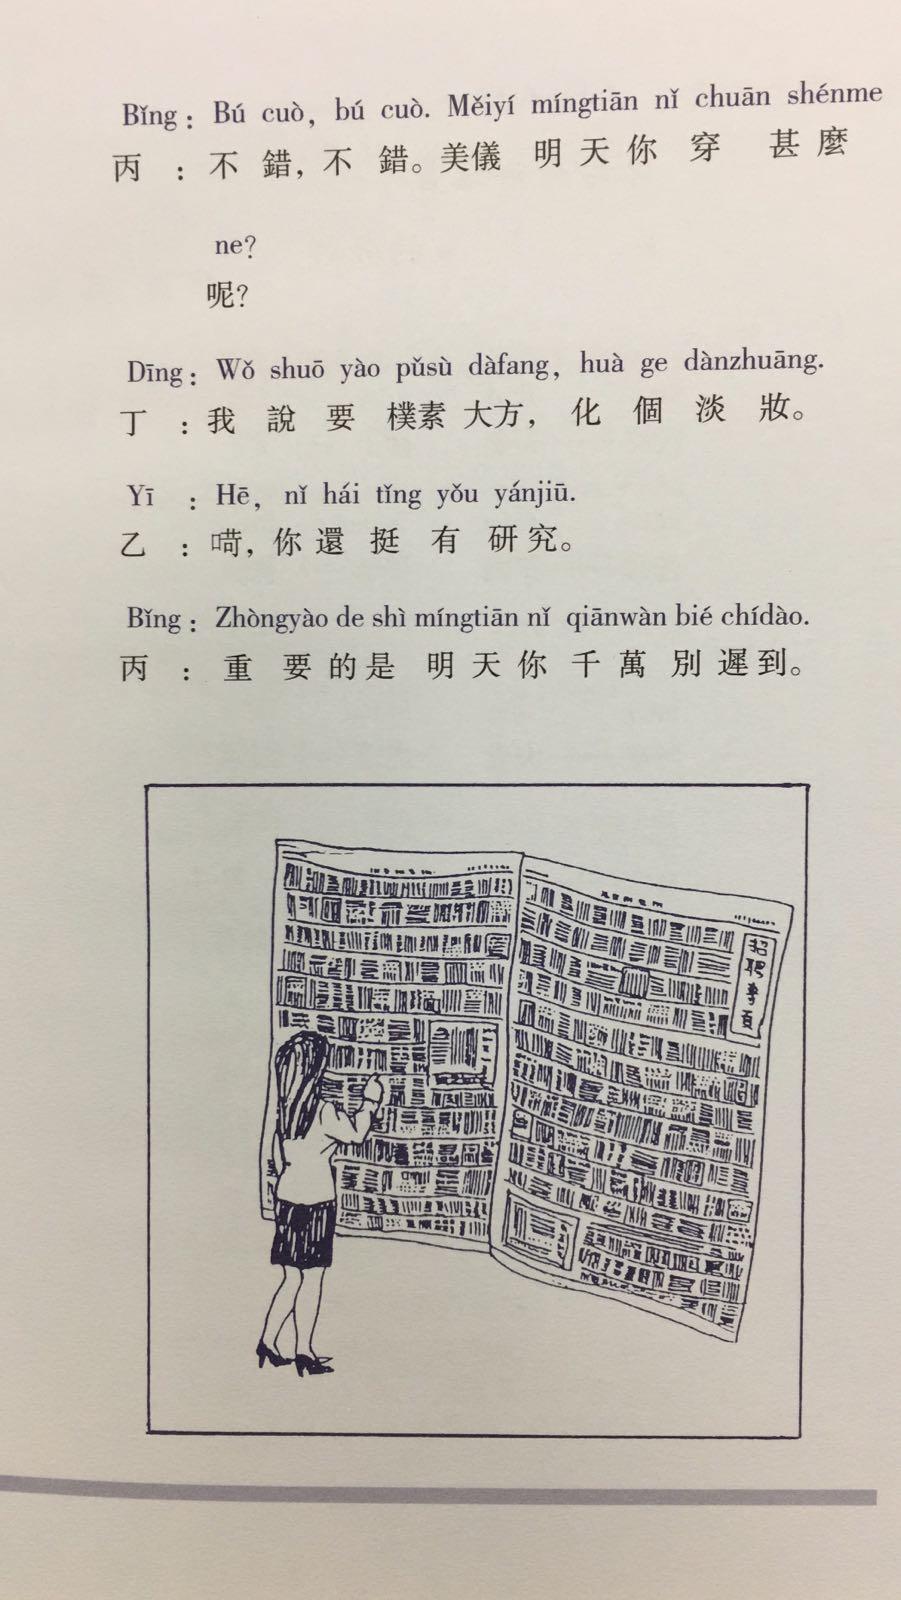 Bǐng : Bú cuò, bú cuò. Měiyí míngtiān nǐ chuān shénme
丙 : 不 錯, 不 錯。美儀 明 天 你 穿 甚 麼
ne?
呢?
Dīng : Wǒ shuō yào pǔsù dàfang, huà ge dànzhuāng.
丁 : 我 說 要 樸素 大方, 化 個 淡 妝。
Yī : Hē, nǐ hái tǐng yǒu yánjiū.
乙 : 嗬, 你 還 挺 有 研 究。
Bǐng : Zhòngyào de shì míngtiān nǐ qiānwàn bié chídào.
丙 : 重 要 的 是 明 天 你 千 萬 別 遲 到。
招聘專頁